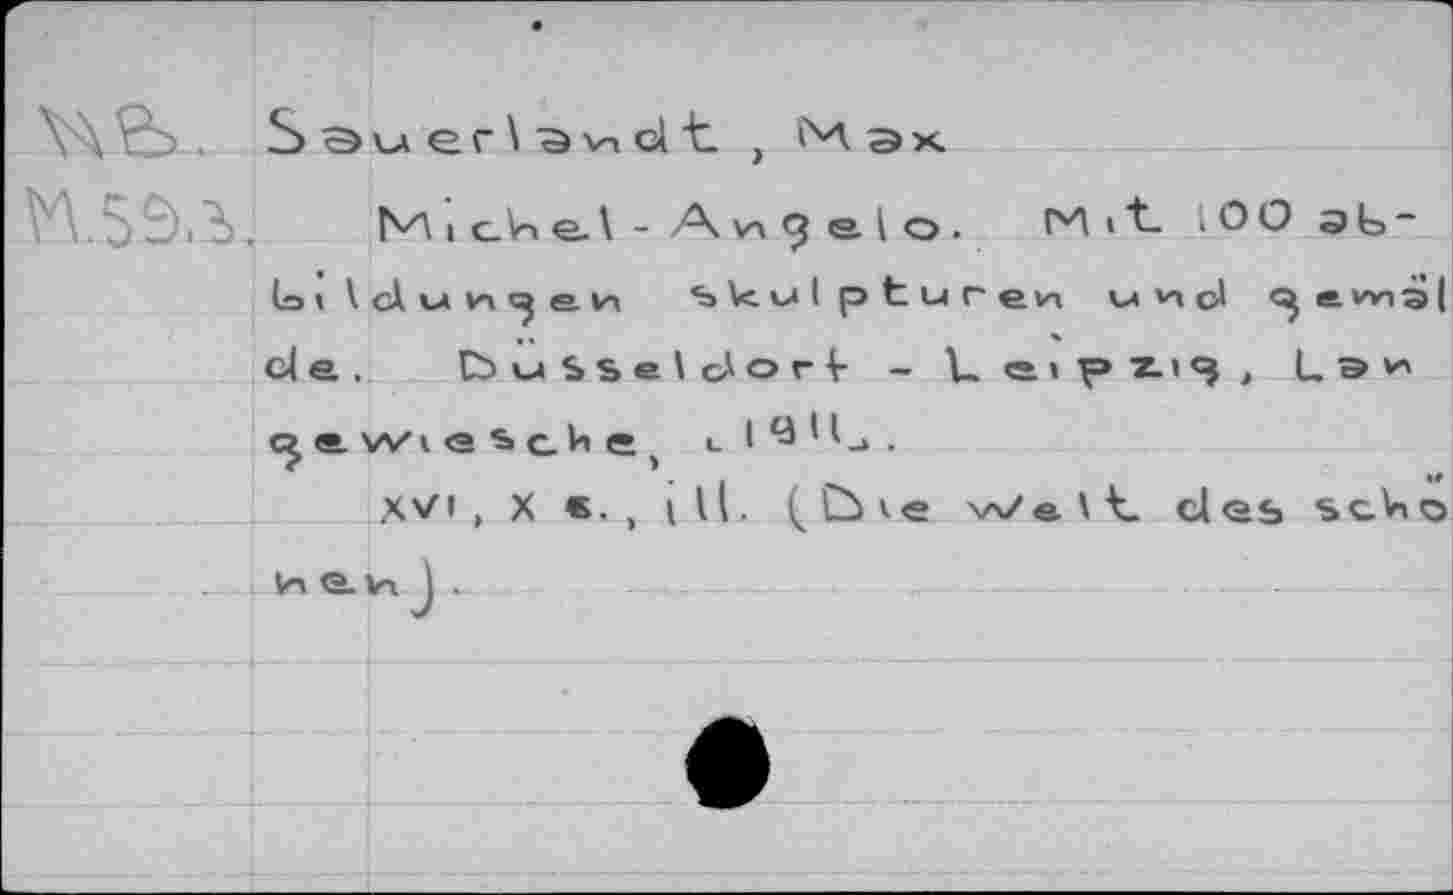 NB. Sauerlandt, Max
M.59.3. Michel-Angelo. Mit 100 ab-
bildungen skulpturen und gemäl
de. Düsseldorf - Leipzig, Lan
gewiesche, [1911].
XVI, X s., ill. (Die welt des schö
nen).